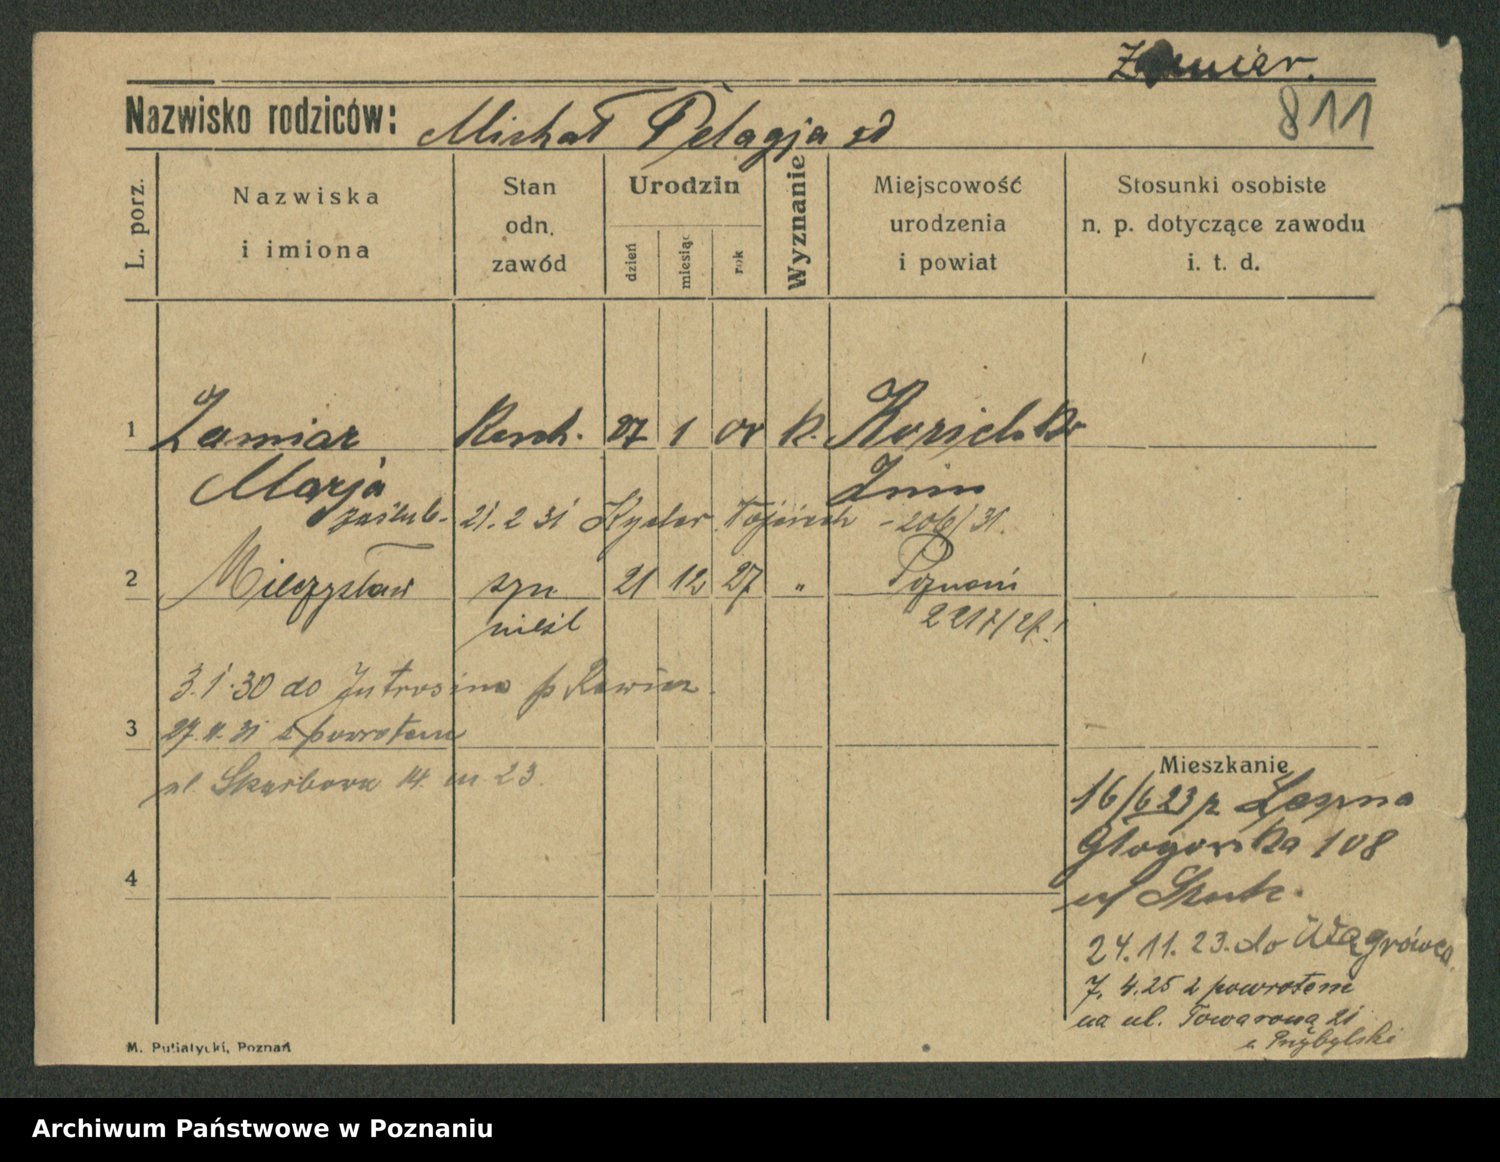 811
Nazwisko rodziców: Michał Pelagja zd
L. porz.
Nazwiska i imiona
Stan odn. zawód
Urodzin
dzień miesiąc rok
Wyznanie
Miejscowość urodzenia i powiat
Stosunki osobiste n. p. dotyczące zawodu i. t. d.
1 Zamiar 27 1 k.
Marja Żnin
zaślub. 21.2 31 - 20/6/31.
2 Mieczysław syn 21 12 27 " Poznań
nieśl
3.1.30 do Jutrosina p Rawicz.
3 27.11.31 z powrotem
ul Skarbowa 14. m 23.
Mieszkanie
16/6 23 z
Głogowska 108
4
24.11.23. do Wągrówca.
7. 4.25 z powrotem
na ul. Towarową 21
Przybylski
M. Putiatycki, Poznań
Archiwum Państwowe w Poznaniu